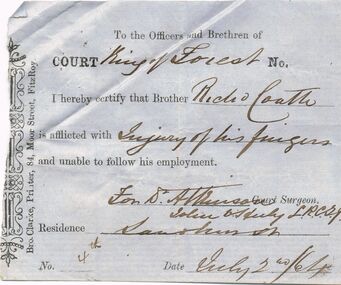 To the Officers and Brethren of
COURT King of Forest No.
I hereby certify that Brother Richd Coath
is afflicted with Injury of his fingers
and unable to follow his employment.
For D. Atkinson Court Surgeon.
Residence Sandhurst
No. 4th Date July 2nd /64
Bro. Clarke, Printer, 84, Moor Street, FitzRoy